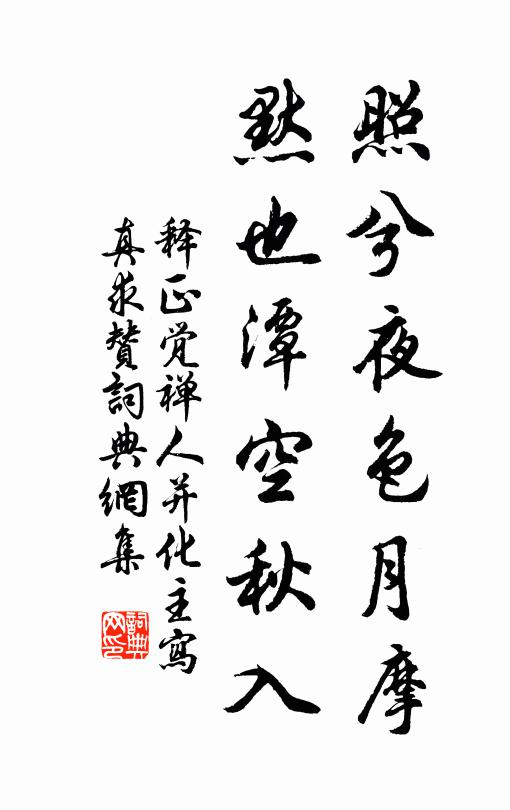 照兮夜色月摩
默也潭空秋入
释正觉禅人并化主寫
真求贊詞典網集
詞典网印